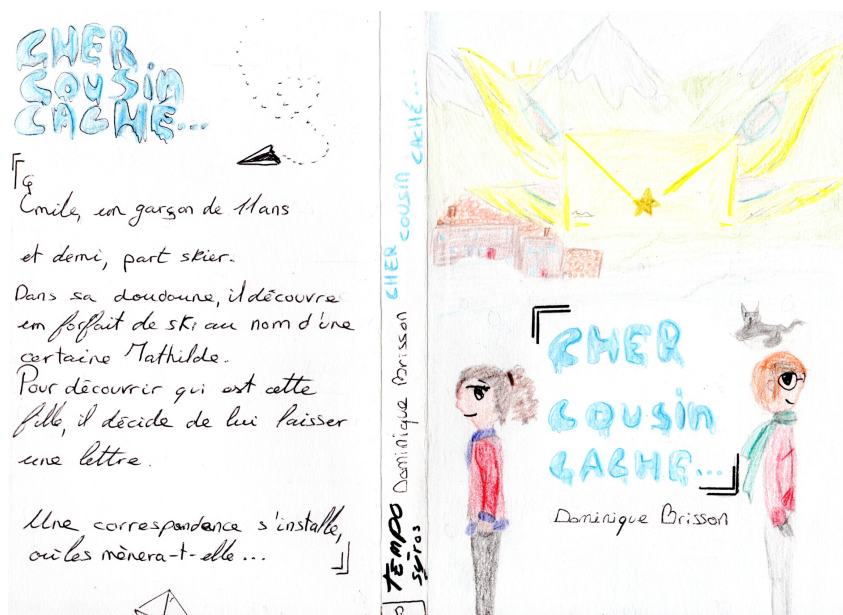 CHER
COUSIN
CACHÉ...
Émile, un garçon de 11 ans
et demi, part skier.
Dans sa doudoune, il découvre
un forfait de ski au nom d'une
certaine Mathilde.
Pour découvrir qui est cette
fille, il décide de lui laisser
une lettre.
Une correspondance s'installe,
où les mènera-t-elle...
TEMPO syros Dominique Brisson CHER COUSIN CACHÉ...
CHER
COUSIN
CACHÉ...
Dominique Brisson